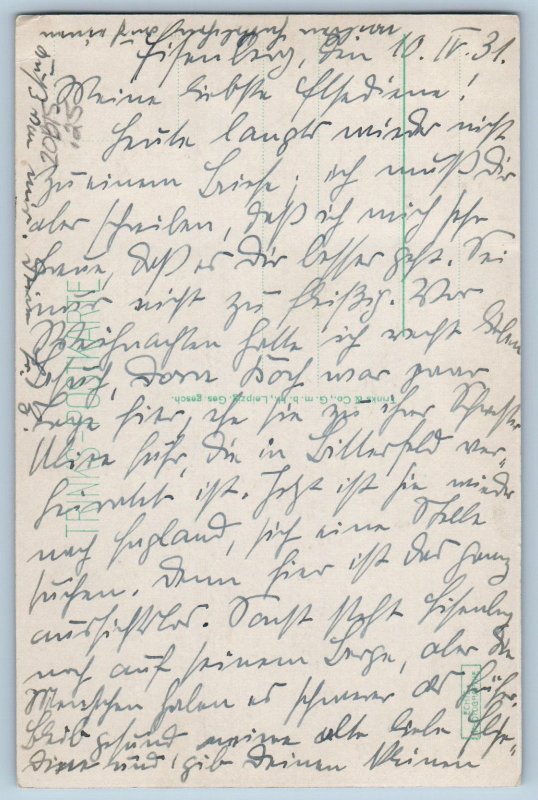 Eisenberg, den 10. IV. 31.
Meine liebste Elsediene!
Heute langts wieder nicht
zu einem Briefe; ich muß Dir
aber schreiben, daß ich mich sehr
freue, daß es Dir besser geht. Sei
nur nicht zu fleißig. Vor
Weihnachten hatte ich recht lieben
Besuch, Dora Koch war paar
Tage hier, ehe sie zu ihrer Schwester
Aline fuhr, die in Bitterfeld ver-
heiratet ist. Jetzt ist sie wieder
nach England, sich eine Stelle
suchen. Denn hier ist das ganz
aussichtslos. Sonst steht Eisenberg
noch auf seinem Berge, aber die
Menschen haben es schwerer als früher.
Bleib gesund meine alte liebe Else-
diene und gib Deinen Kleinen
von mir.
20615
125
TRINKS-POSTKARTE
Trinks & Co., G. m. b. H., Leipzig Ges. gesch.